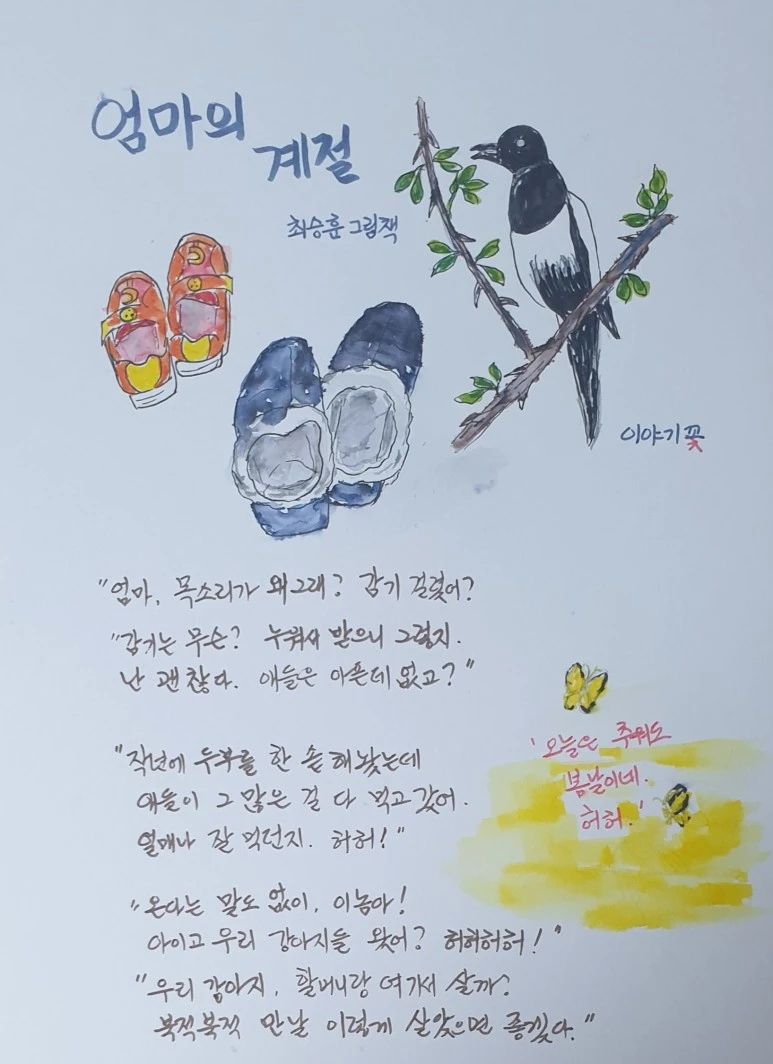 엄마의
계절
최승훈 그림책
이야기꽃
"엄마, 목소리가 왜그래? 감기 걸렸어?
"감기는 무슨? 누워서 받으니 그렇지.
난 괜찮다. 애들은 아픈데 없고?"
"작년에 두부를 한 손 해놨는데
애들이 그 많은 걸 다 먹고 갔어.
얼매나 잘 먹던지. 허허!"
'오늘은 추워도
봄날이네.
허허.'
"온다는 말도 없이, 이놈아!
아이고 우리 강아지들 왔어? 허허허허!"
"우리 강아지, 할머니랑 여기서 살까?
북적북적 만날 이렇게 살았으면 좋겠다."